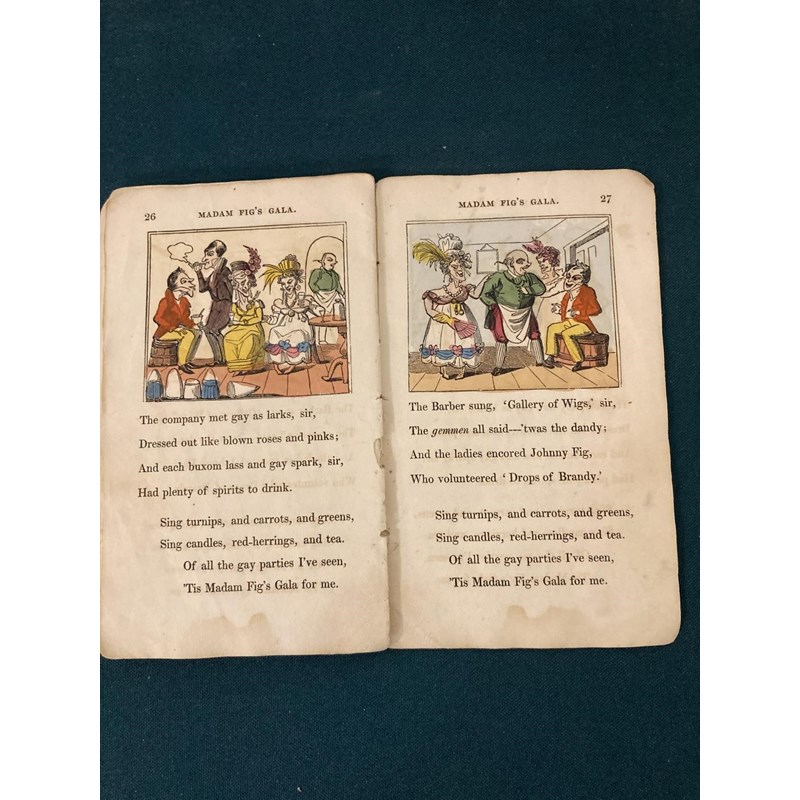 26
MADAM FIG'S GALA.
The company met gay as larks, sir,
Dressed out like blown roses and pinks;
And each buxom lass and gay spark, sir,
Had plenty of spirits to drink.
Sing turnips, and carrots, and greens,
Sing candles, red-herrings, and tea.
Of all the gay parties I've seen,
'Tis Madam Fig's Gala for me.
MADAM FIG'S GALA.
27
The Barber sung, 'Gallery of Wigs,' sir,
The gemmen all said—'twas the dandy;
And the ladies encored Johnny Fig,
Who volunteered 'Drops of Brandy.'
Sing turnips, and carrots, and greens,
Sing candles, red-herrings, and tea.
Of all the gay parties I've seen,
'Tis Madam Fig's Gala for me.